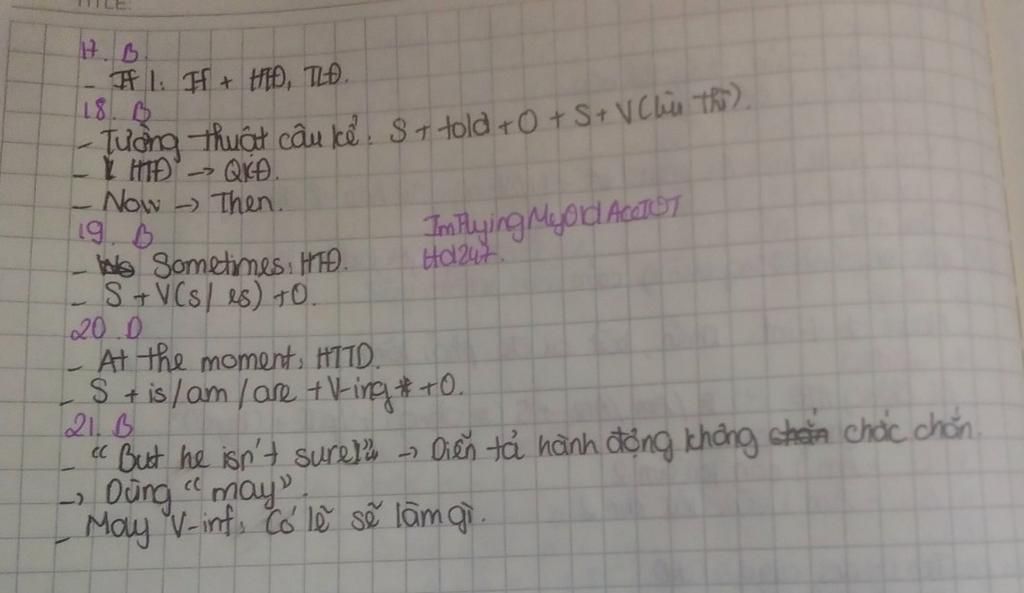 TITLE
17. B
- If 1: If + HTĐ, TLĐ.
18. B
- Tường thuật câu kể: S + told + O + S + V(lùi thì).
- HTĐ → QKĐ.
- Now → Then.
19. B
- Sometimes: HTĐ.
- S + V(s/es) + O.
ImFlyingMyOldAccTOT
Hd247.
20. D
- At the moment: HTTD.
- S + is/am/are + V-ing + O.
21. B
- "But he isn't sure!" → Diễn tả hành động không chắc chắn.
→ Dùng "may".
- May V-inf: Có lẽ sẽ làm gì.